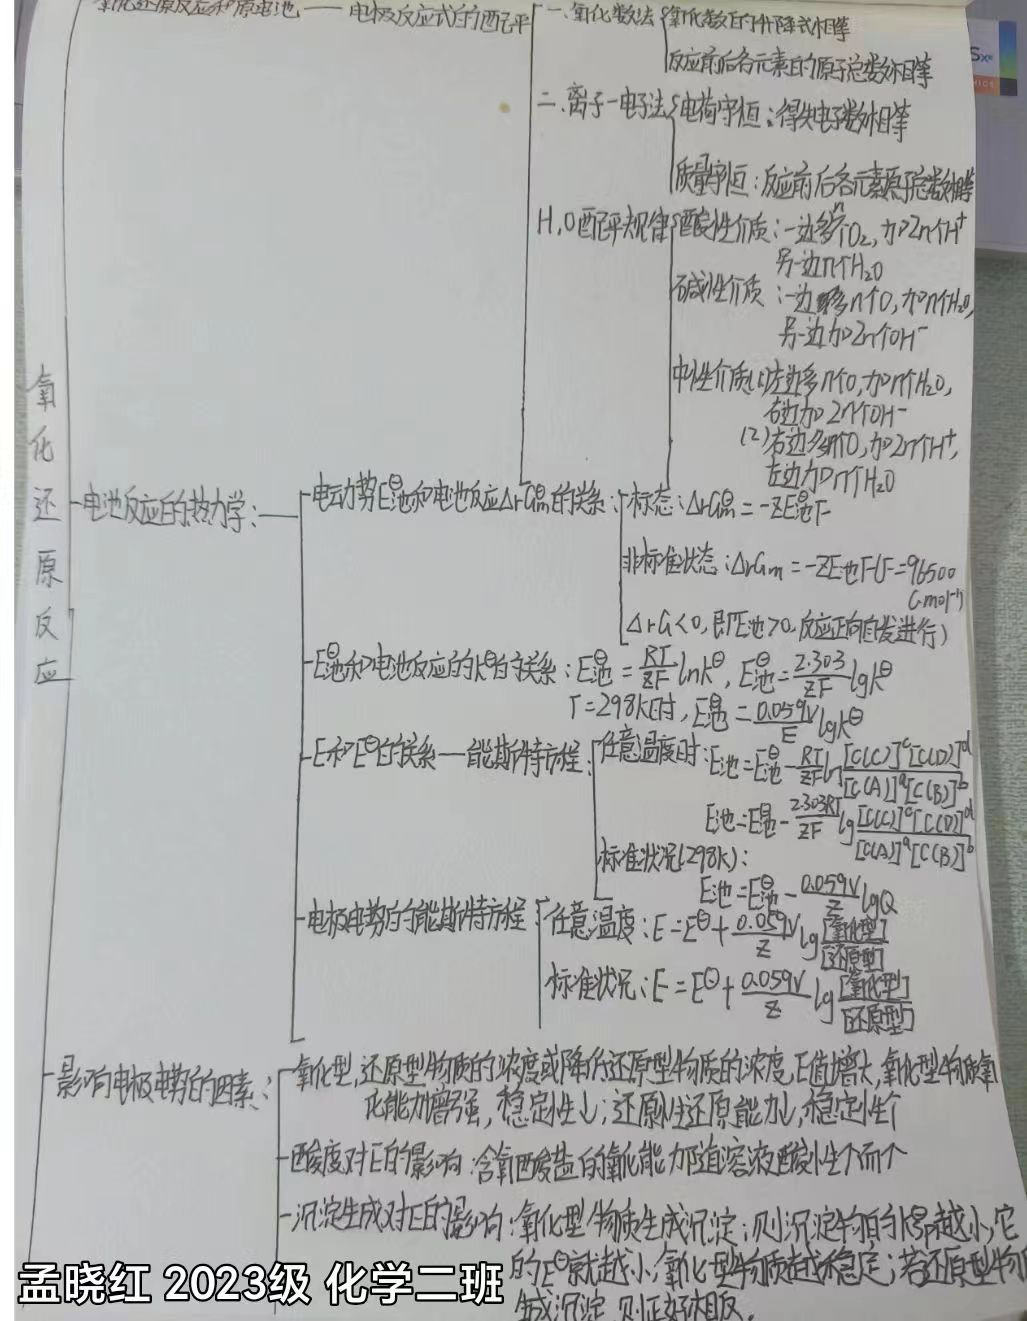 氧化还原反应和原电池 —— 电极反应式的配平
一.氧化数法 氧化数的升降式相等
反应前后各元素的原子总数相等
二.离子-电子法 电荷守恒：得失电子数相等
质量守恒：反应前后各元素原子总数相等
H,O配平规律 酸性介质：一边多n个O₂,加2n个H⁺
另一边n个H₂O
碱性介质：一边多n个O,加n个H₂O,
另一边加2n个OH⁻
中性介质：(1)左边多n个O,加n个H₂O,
右边加2n个OH⁻
(2)右边多n个O,加2n个H⁺,
左边加n个H₂O
氧化还原反应
电池反应的热力学：
电动势E池^Θ和电池反应ΔrGm^Θ的关系：标态：ΔrGm^Θ=-ZE池^ΘF
非标准状态：ΔrGm=-ZE池F(F=96500
C·mol⁻¹)
ΔrG<0,即E池>0,反应正向自发进行)
E池^Θ和电池反应的K^Θ的关系：E池^Θ=RT/ZF lnK^Θ, E池^Θ=2.303/ZF lgK^Θ
T=298K时,E池^Θ=0.059V/E lgK^Θ
E和E^Θ的关系—能斯特方程：任意温度时：E池=E池^Θ-RT/ZF lg [C(C)]^c[C(D)]^d/[C(A)]^a[C(B)]^b
E池=E池^Θ-2.303RT/ZF lg [C(C)]^c[C(D)]^d/[C(A)]^a[C(B)]^b
标准状况(298K)：
E池=E池^Θ-0.059V/Z lgQ
电极电势的能斯特方程 任意温度：E=E^Θ+0.059V/Z lg [氧化型]/[还原型]
标准状况：E=E^Θ+0.059V/Z lg [氧化型]/[还原型]
影响电极电势的因素：
氧化型,还原型物质的浓度或降低还原型物质的浓度,E值增大,氧化型物质氧
化能力增强,稳定性↓；还原性还原能力↓,稳定性个
酸度对E的影响：含氧酸盐的氧化能力随溶液酸性个而个
沉淀生成对E的影响：氧化型物质生成沉淀；则沉淀物的越小,它
的E^Θ就越小,氧化型物质越稳定；若还原型物
生成沉淀 则正好相反。
孟晓红 2023级 化学二班